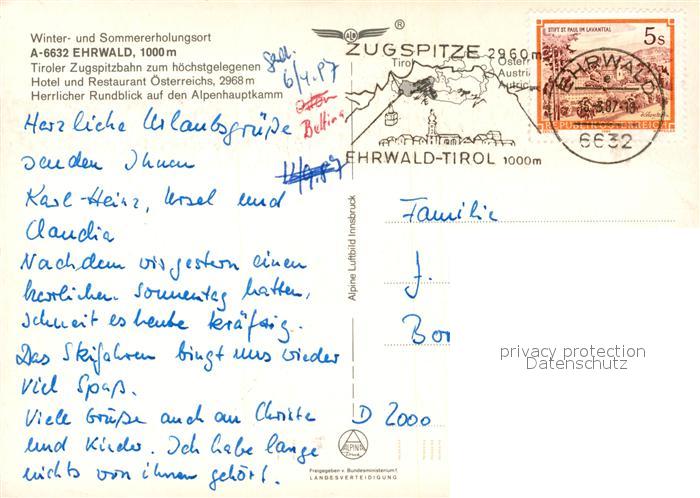 Winter- und Sommererholungsort
A-6632 EHRWALD, 1000 m
Tiroler Zugspitzbahn zum höchstgelegenen
Hotel und Restaurant Österreichs, 2968 m
Herrlicher Rundblick auf den Alpenhauptkamm
6/4.87
Bettina
11/4.87
Herzliche Urlaubsgrüße
senden Ihnen
Karl-Heinz, Ursel und
Claudia
Nachdem wir gestern einen
herrlichen Sonnentag hatten,
schneit es heute kräftig.
Das Skifahren bringt uns wieder
viel Spaß.
Viele Grüße auch an Christe
und Kinder. Ich habe lange
nichts von ihnen gehört.
Alpine Luftbild Innsbruck
ALPINE
Freigegeben v. Bundesministerium f.
LANDESVERTEIDIGUNG
®
ZUGSPITZE 2960m
Tirol
EHRWALD-TIROL 1000m
STIFT ST. PAUL IM LAVANTTAL
5 S
REPUBLIK ÖSTERREICH
EHRWALD
6632
Familie
J.
Bor
D 2000
privacy protection
Datenschutz